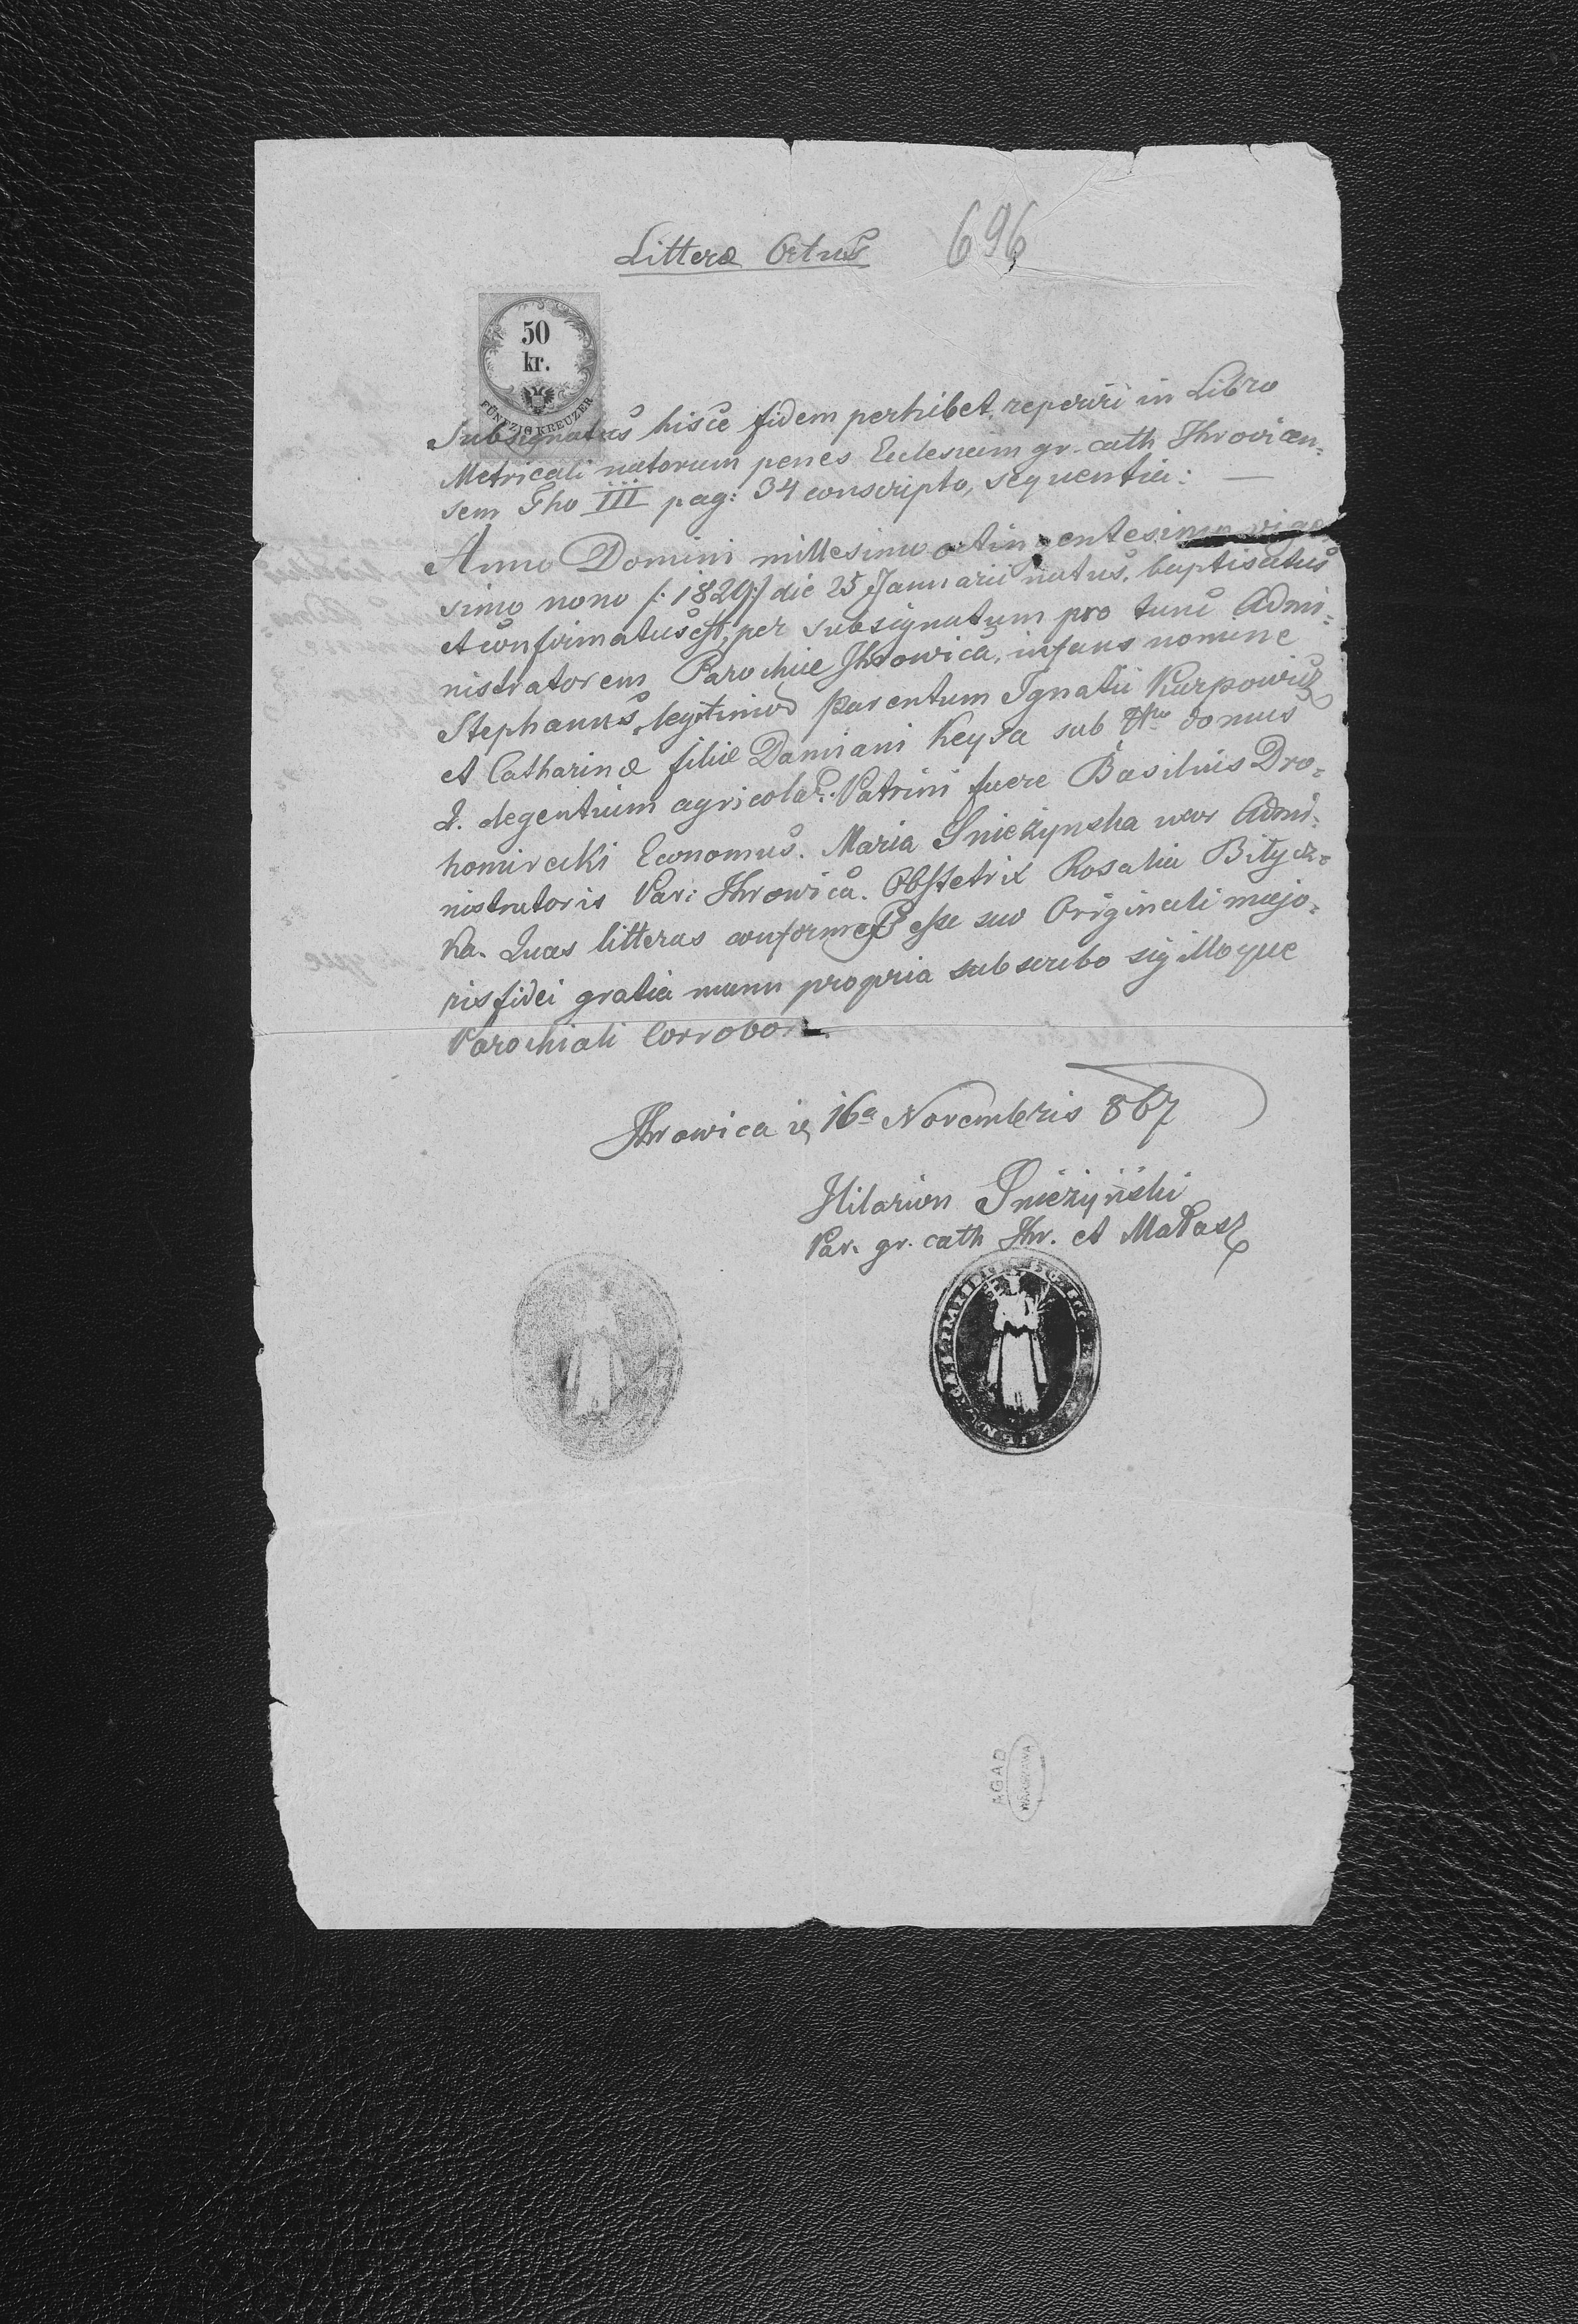 Litteræ Ortus 696
50
kr.
FÜNFZIG KREUZER
Subsignatus hisce fidem perhibet, reperiri in Libro
Metricali natorum penes Ecclesiam gr. cath Ihrovicen-
sem Tho III pag: 34 conscripto, sequentia: —
Anno Domini millesimo octingentesimo vige
simo nono /: 1829 :/ die 25 Januarii natus, baptisatus
et confirmatus est, per subsignatum pro tunc Admi-
nistratorem Parochiæ Ihrowica, infans nomine
Stephanus, legitimus parentum Ignatii Karpowicz
et Catharinæ filiæ Damiani Keyda sub Nro domus
2. degentium agricolar: Patrini fuere Basilius Dro-
homirecki Economus. Maria Snieżynska uxor Admi-
nistratoris Par: Ihrowica. Obstetrix Rosalia Bitycz-
ka. Quas litteras conformes esse suo Originali majo-
ris fidei gratia manu propria subscribo sigilloque
Parochiali Corrobor
Ihrowica 16a Novembris 867
Hilarion Snieżyński
Par. gr. cath Ihr. et
AGAD
WARSZAWA